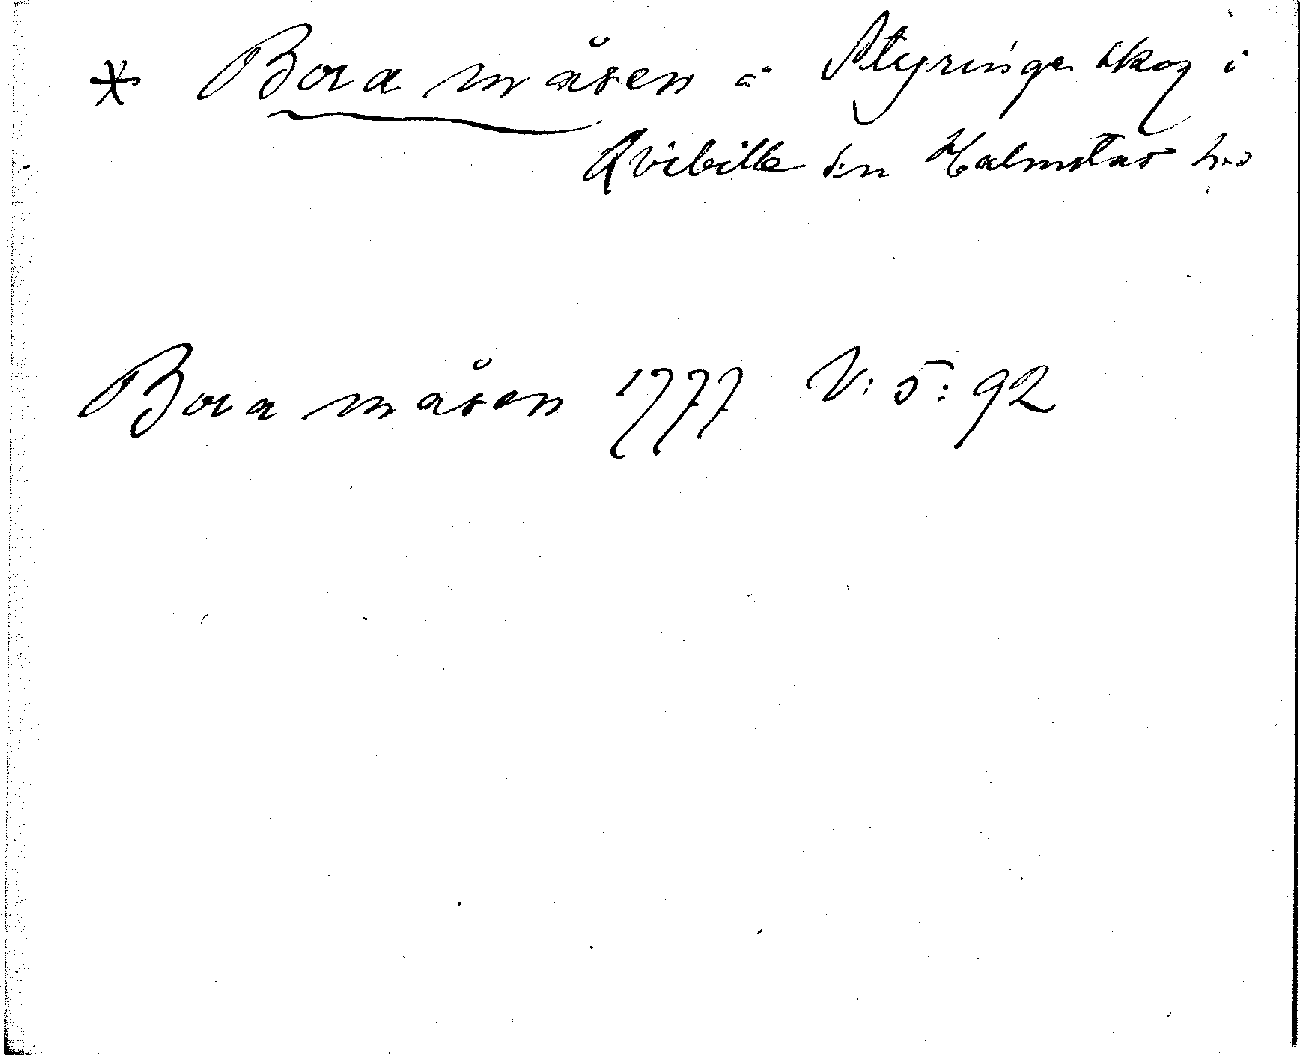 * Bora måsen å Styringe skog i
Qvibille sn Halmstad hd
Bora måsen 1777 V: 5: 92